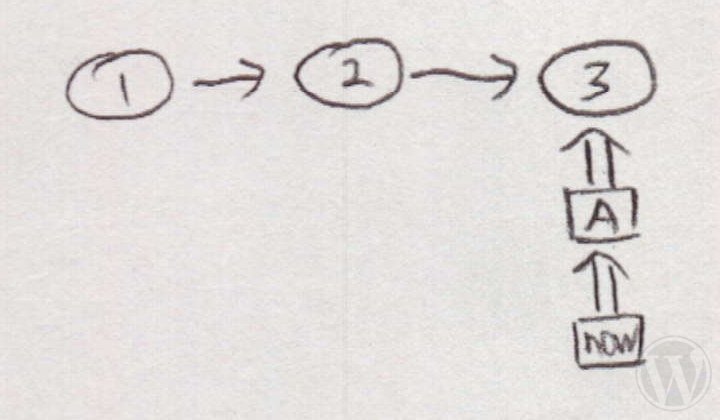 1 2 3
A
now